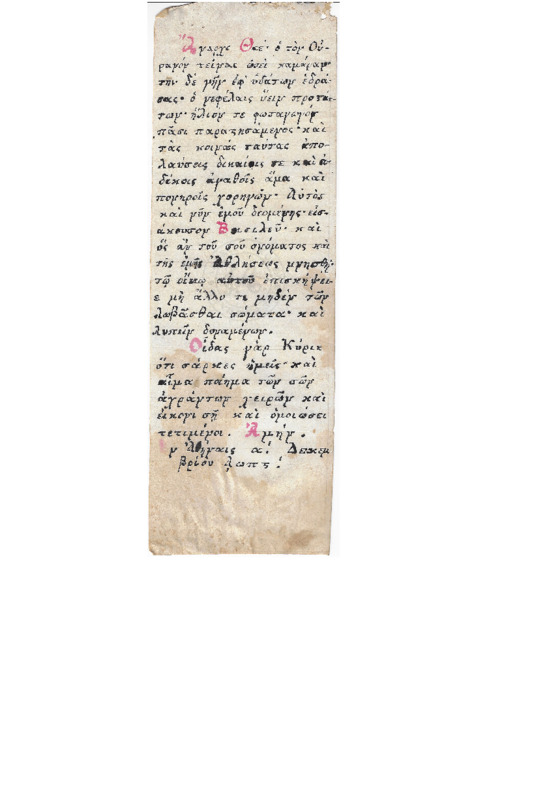 Ἄναρχε Θεέ· ὁ τὸν Οὐ-
ρανὸν τείνας ὡσεὶ καμάραν
τὴν δὲ γῆν ἐφ' ὑδάτων ἑδρά-
σας· ὁ νεφέλαις ὕειν προτά-
των· ἥλιον τε φωταγωγόν
πᾶσι παρατησάμενος· καὶ
τὰς κοινὰς ταύτας ἀπο-
λαύσεις δικαίοις τε καὶ ἀ-
δίκοις ἀγαθοῖς ἅμα καὶ
πονηροῖς χορηγῶν· Αὐτὸς
καὶ νῦν ἐμοῦ δεομένης εἰσ-
άκουσον Βασιλεῦ· καὶ
ὃς ἂν τοῦ σοῦ ὀνόματος καὶ
τῆς ἐμῆς Ἀθλήσεως μνησθῇ·
τῷ οἴκῳ αὐτοῦ ἐπισκήψει-
ε μὴ ἄλλο τε μηδὲν τῶν
λωβᾶσθαι σώματα· καὶ
λυπεῖν δυναμένων.
Οἶδας γὰρ Κύριε
ὅτι σάρκες ἡμεῖς· καὶ
αἷμα ποίημα τῶν σῶν
ἀχράντων χειρῶν καὶ
εἰκόνι σῇ καὶ ὁμοιώσει
τετιμένοι. Ἀμήν.
ν Ἀθήναις α. Δεκεμ
βρίου ͵αωπς!